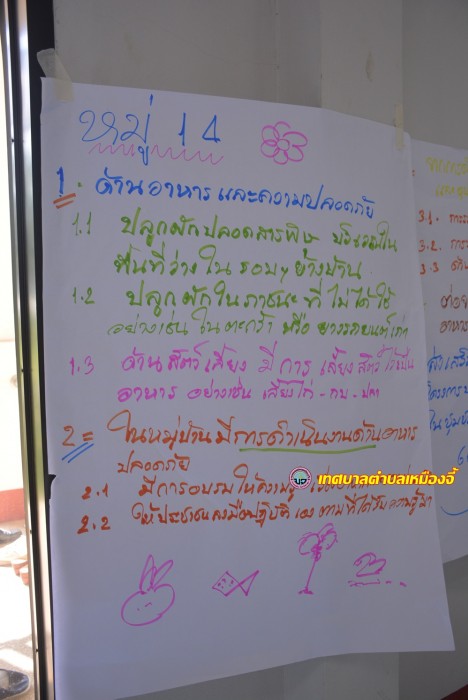 หมู่ 14
1. ด้านอาหารและความปลอดภัย
1.1 ปลูกผักปลอดสารพิษ บริเวณใน
พื้นที่ว่างในรอบๆ ข้างบ้าน
1.2 ปลูกผักในภาชนะที่ไม่ได้ใช้
อย่างเช่น ในตะกร้า หรือ ยางรถยนต์เก่า
1.3 ด้านสัตว์เลี้ยง มีการเลี้ยงสัตว์ไว้เป็น
อาหาร อย่างเช่น เลี้ยงไก่ - กบ - ปลา
2 = ในหมู่บ้านมีการดำเนินงานด้านอาหาร
ปลอดภัย
2.1 มีการอบรมให้ความรู้
2.2 ให้ประชาชนลงมือปฏิบัติเองตามที่ได้รับความรู้มา
เทศบาลตำบลเหมืองจี้
3.1.
3.2.
3.3